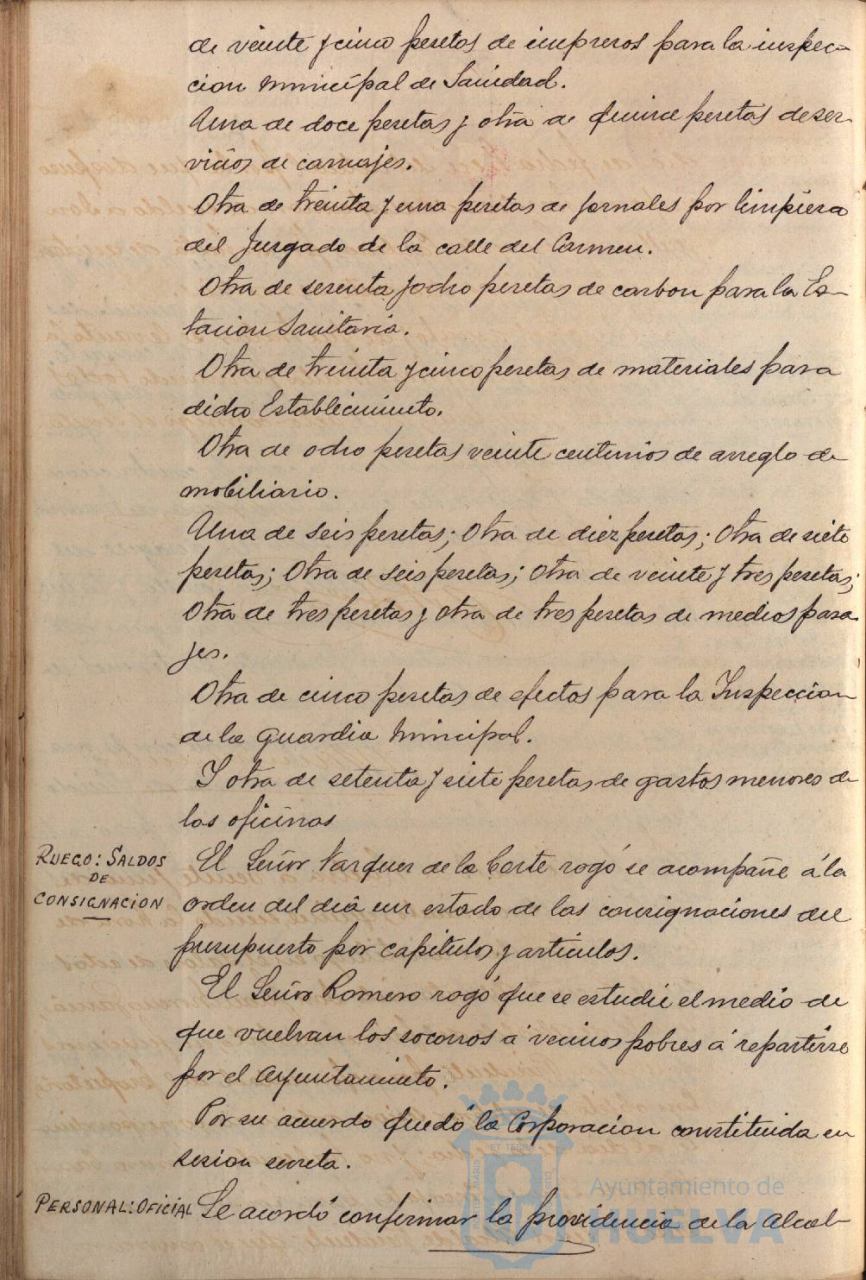 de veinte y cinco pesetas de impresos para la inspec-
cion municipal de Sanidad.
Una de doce pesetas y otra de quince pesetas de ser-
vicios de carruajes.
Otra de treinta y una pesetas de jornales por limpieza
del Juzgado de la calle del Carmen.
Otra de sesenta y ocho pesetas de carbon para la Es-
tacion Sanitaria.
Otra de treinta y cinco pesetas de materiales para
dicho Establecimiento.
Otra de ocho pesetas veinte centimos de arreglo de
mobiliario.
Una de seis pesetas; Otra de diez pesetas; Otra de siete
pesetas; Otra de seis pesetas; Otra de veinte y tres pesetas;
Otra de tres pesetas y otra de tres pesetas de medios pasa
jes.
Otra de cinco pesetas de efectos para la Inspeccion
de la guardia municipal.
Y otra de setenta y siete pesetas de gastos menores de
las oficinas
RUEGO: SALDOS
DE
CONSIGNACION
El Señor Vazquez de la Corte rogó se acompañe á la
orden del dia un estado de las consignaciones del
presupuesto por capitulos y articulos.
El Señor Romero rogó que se estudie el medio de
que vuelvan los socorros á vecinos pobres á repartirse
por el Ayuntamiento.
Por su acuerdo quedó la Corporacion constituida en
sesion secreta.
PERSONAL: OFICIAL
Se acordó confirmar la providencia de la Alcal-
Ayuntamiento de
HUELVA